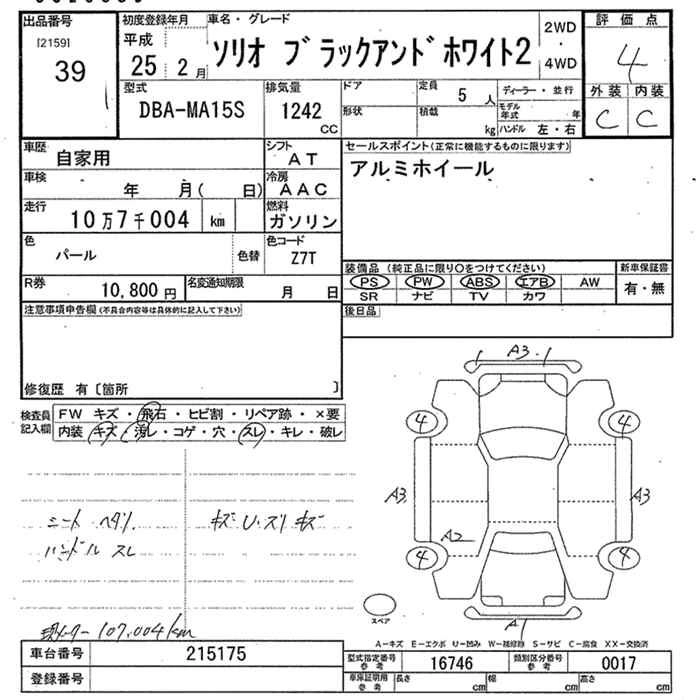 出品番号 初度登録年月 車名・グレード 評価点
[2159] 平成 ソリオ ブラックアンドホワイト2 2WD・4WD 4
39 25 2月
型式 排気量 ドア 定員 5人 ディーラー・並行 外装 内装
DBA-MA15S 1242 CC 形状 積載 kg モデル年式 年 C C
ハンドル 左・右
車歴 自家用 シフト AT セールスポイント(正常に機能するものに限ります)
車検 年 月( 日) 冷房 AAC アルミホイール
走行 10万7千004 km 燃料 ガソリン
色 パール 色替 色コード Z7T
装備品 (純正品に限り○をつけてください) 新車保証書
R券 10,800円 名変通知期限 月 日 PS PW ABS エアB AW 有・無
SR ナビ TV カワ
注意事項申告欄(不具合内容等は具体的に記入して下さい) 後日品
修復歴 有〔箇所 〕
検査員記入欄 FW キズ・飛石・ヒビ割・リペア跡・×要
内装 キズ・汚レ・コゲ・穴・スレ・キレ・破レ
A3
4 4
A3 A3
A2
4 4
A1
シートヘタリ
ハンドルスレ
キズU.スリキズ
スペア
現メーター 107,004km
A－キズ E－エクボ U－凹み W－補修跡 S－サビ C－腐食 XX－交換済
車台番号 215175 型式指定番号 参考 16746 類別区分番号 参考 0017
登録番号 車庫証明用 参考 長さ cm 幅 cm 高さ cm